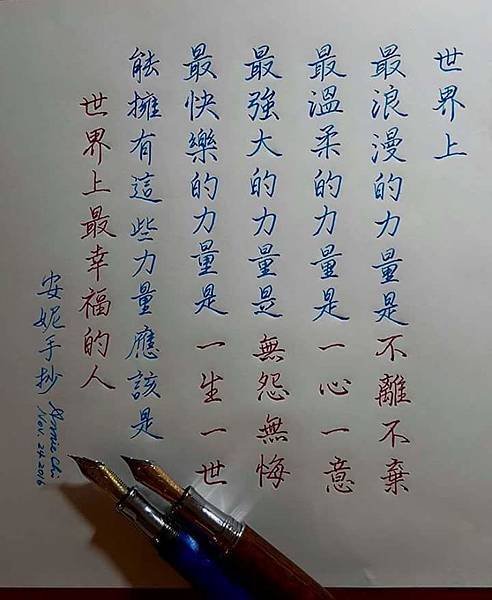 世界上
最浪漫的力量是不離不棄
最溫柔的力量是一心一意
最強大的力量是無怨無悔
最快樂的力量是一生一世
能擁有這些力量應該是
世界上最幸福的人
安妮手抄
Annie Chi
Nov. 24. 2016